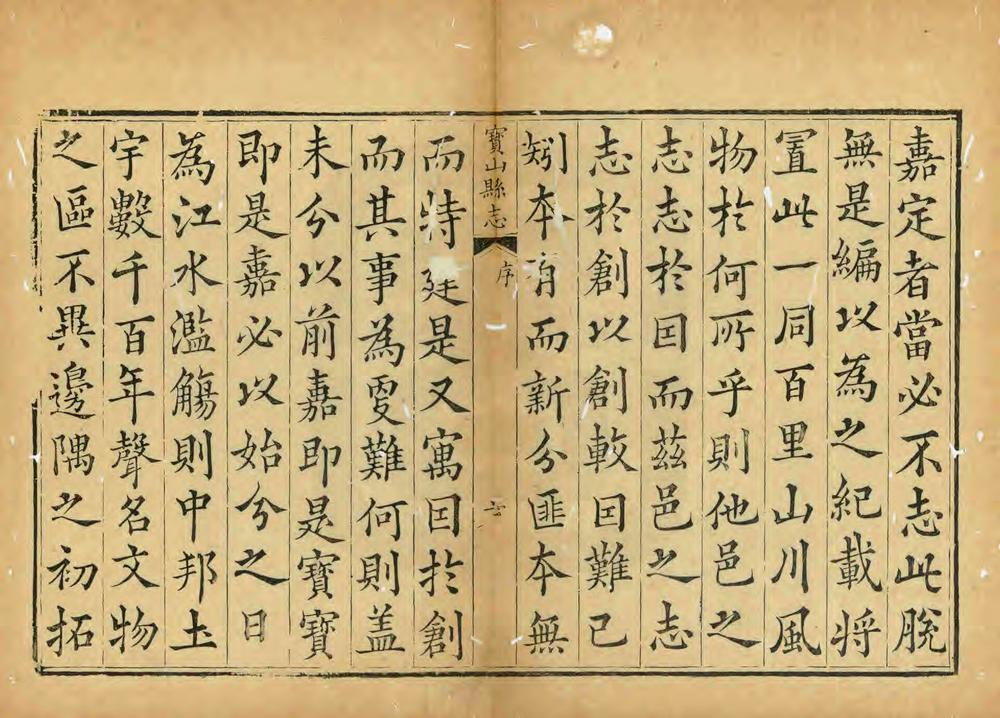 嘉定者當必不志此脫
無是編以為之紀載将
置此一同百里山川風
物於何所乎則他邑之
志志於囙而茲邑之志
志於創以創較囙難已
矧本有而新分匪本無
寶山縣志
序
而特
是又寓囙於創
而其事為更難何則盖
未分以前嘉即是寶寶
即是嘉必以始分之日
為江水濫觴則中邦土
宇數千百年聲名文物
之區不異邊隅之初拓